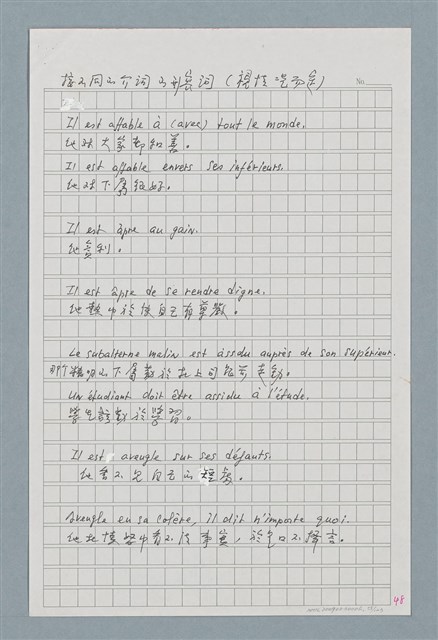 接不同的介詞的形容詞（視情況而定）
No.
Il est affable à (avec) tout le monde.
他對大家都和善。
Il est affable envers ses inférieurs.
他對下屬很好。
Il est âpre au gain.
他貪利。
Il est âpre de se rendre digne.
他熱中於使自己有尊嚴。
Le subalterne malin est assidu auprès de son supérieur.
那个精明的下屬勤於在上司
Un étudiant doit être assidu à l'étude.
學生該勤於學習。
Il est aveugle sur ses défauts.
他看不見自己的短處。
Aveugle en sa colère, il dit n'importe quoi.
他在憤怒中看不清事實，於是口不擇言。
48